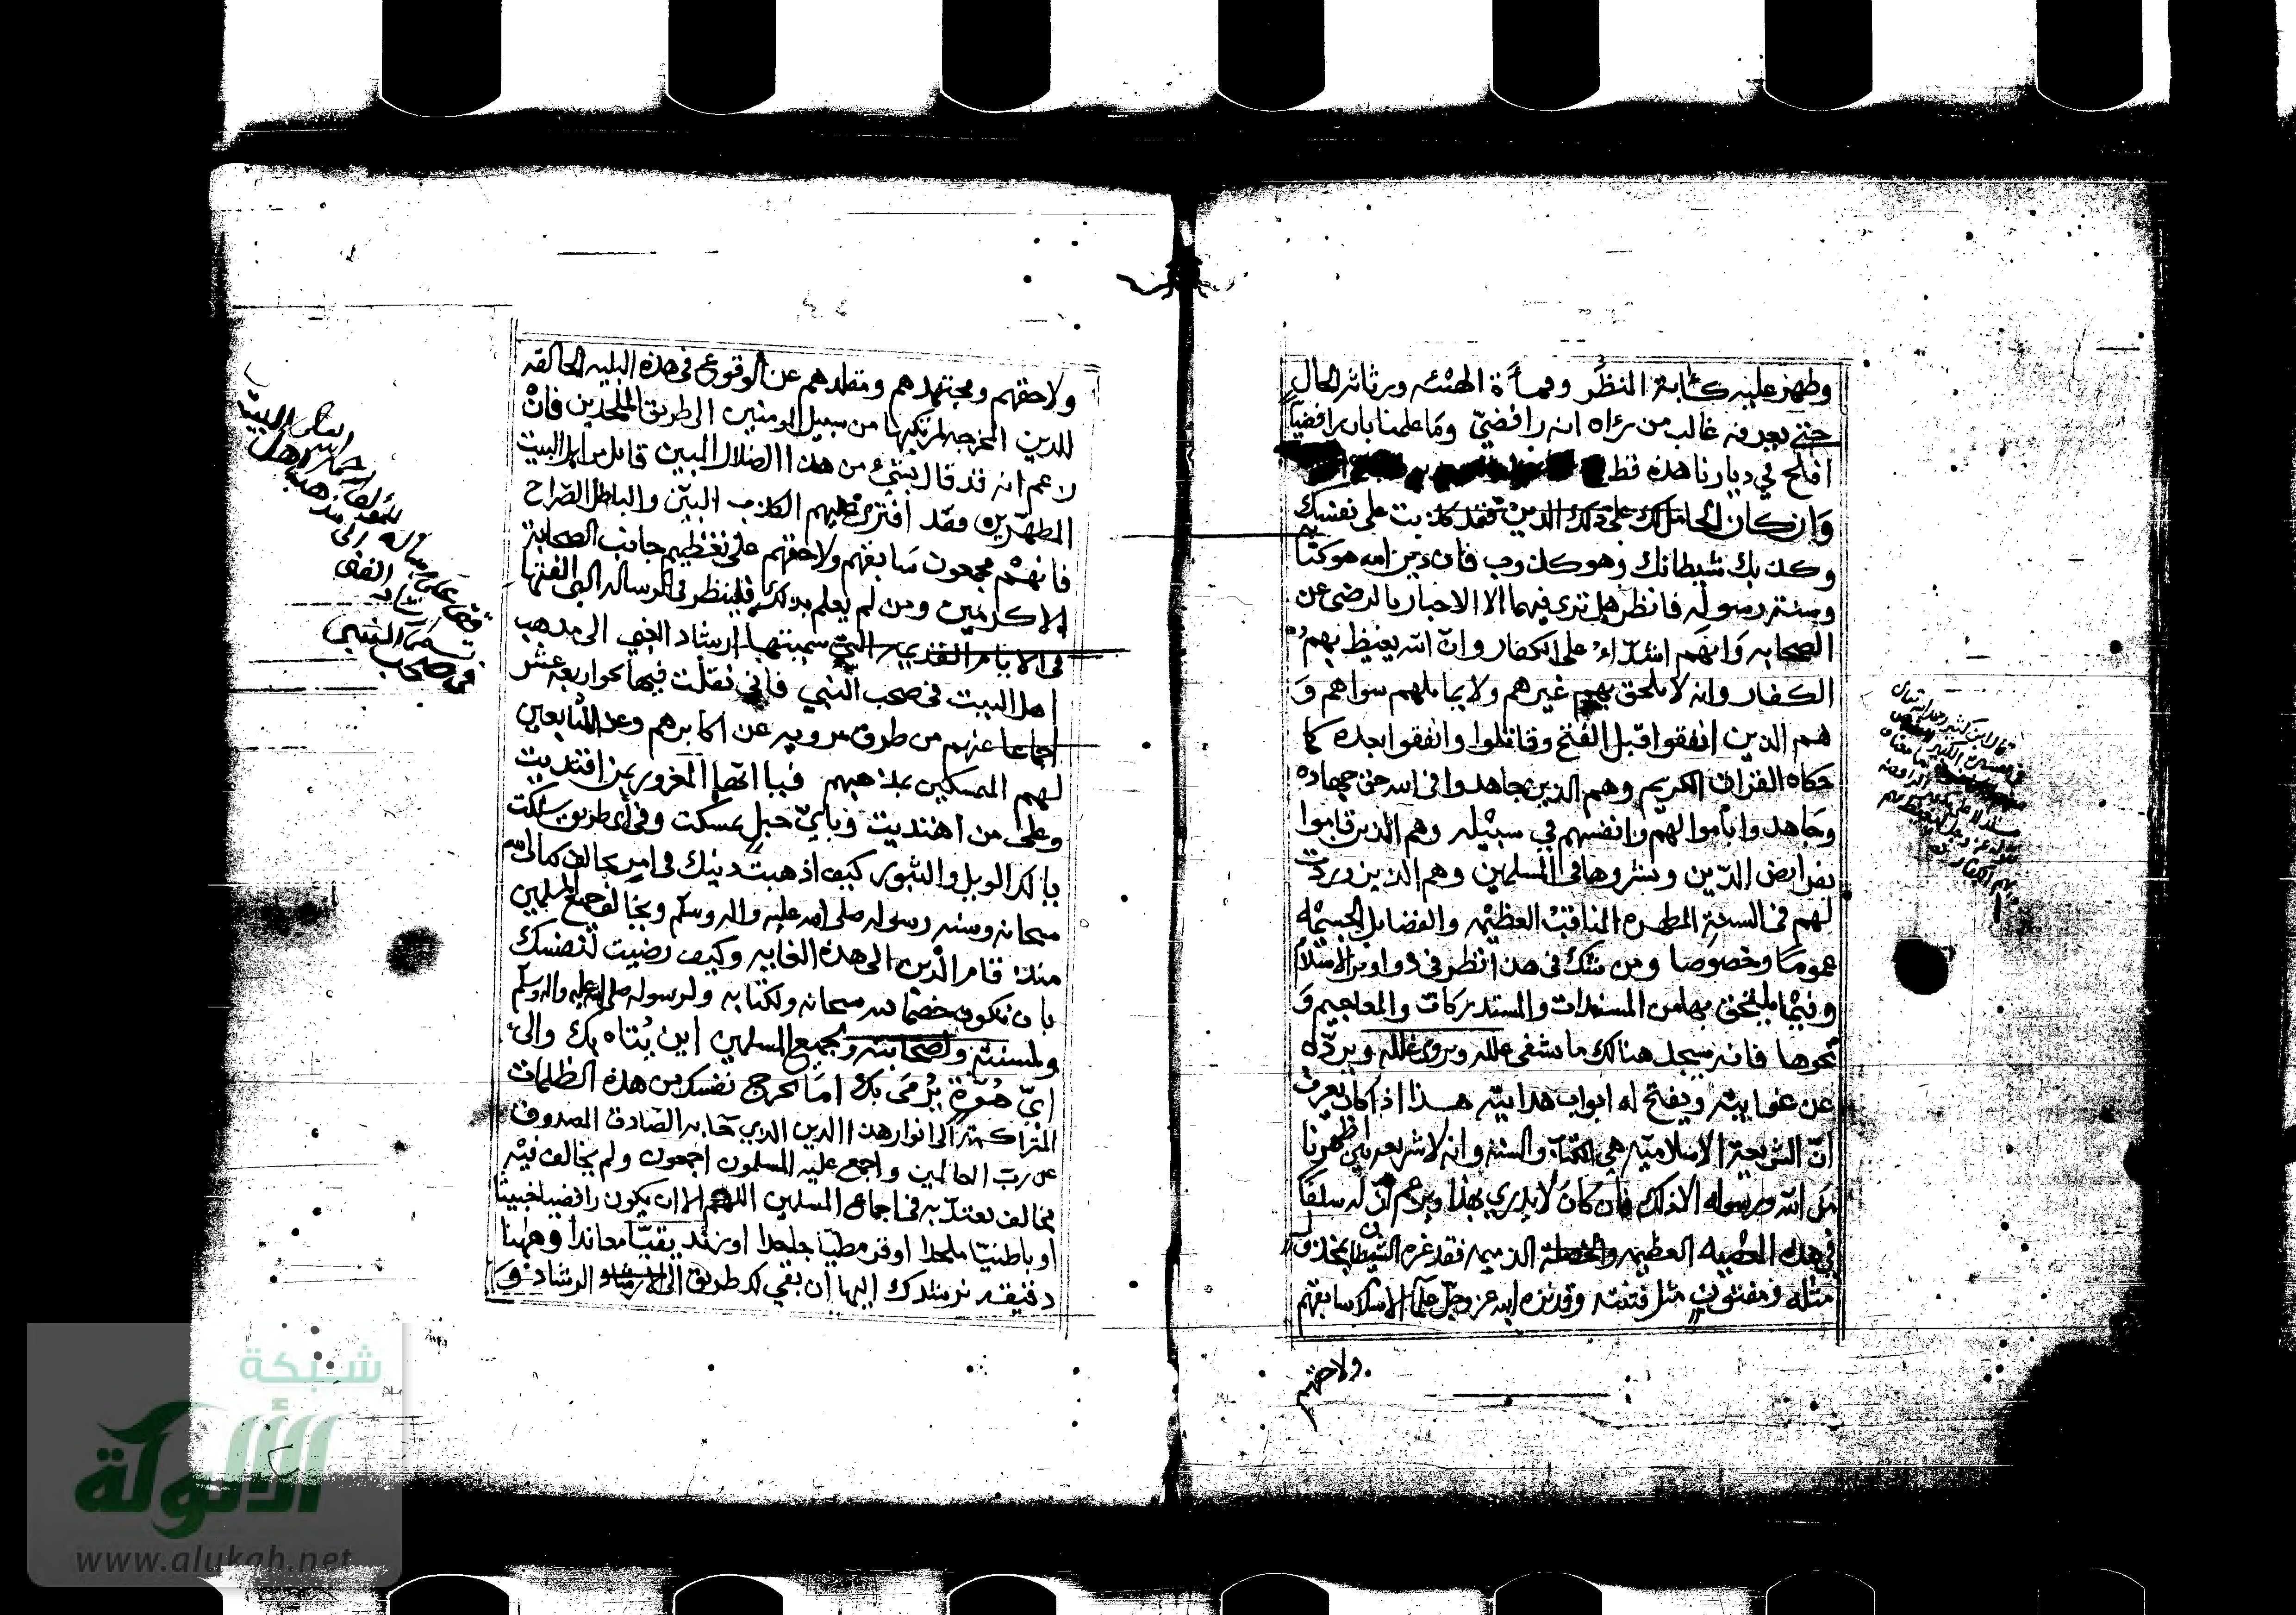 وظهر عليه كآبة المنظر وقماءة الهيئه ورثاثة الحال
حتى يعرفه غالب من رءاه انه رافضيّ وما علمنا بان رافضيّا
افلح في ديارنا هذه قط
وان كان الحامل لك على ذلك الدين فقد كذبت على نفسك
وكذبك شيطانك وهو كذوب فان دين الله هو كتابه
وسنة رسوله فانظر هل ترى فيهما الا الاخبار بالرضى عن
الصحابه وانهم اشدّاء على الكفار وانّ الله يغيظ بهم
الكفار وانه لا يلحق بهم غيرهم ولا يماثلهم سواهم و
هم الذين انفقوا قبل الفتح وقاتلوا وانفقوا بعده كما
حكاه القران الكريم وهم الذين جاهدوا في الله حق جهاده
وجاهدوا باموالهم وانفسهم في سبيله وهم الذين قاموا
بفرايض الدّين ونشروها في المسلمين وهم الذين وردت
لهم في السنة المطهره المناقب العظيمه والفضايل الجسيمه
عموما وخصوصا ومن شك في هذا نظر في دواوين الاسلام
وفيما يلتحق بها من المسندات والمستدركات والمعاجيم و
نحوها فانه سيجد هنالك ما يشفي علله ويروي غلله ويردّه
عن غوايته ويفتح له ابواب هدايته هذا اذا كان يعرف
انّ الشريعة الاسلاميّة هي الكتاب والسنه وانه لا شريعه بين اظهرنا
من الله ورسوله الا ذلك فان كان لا يدري بهذا ويزعم انّ له سلفا
في هذه المصيبه العظيمه والخصلة الذميمه فقد غره الشيطان بمخذول
مثله ومفتون مثل فتنته وقد نزه الله عز وجل علماء الاسلام سابقهم
ولاحقهم
قال ابن كثير رحمه الله تعالى
ولاحقهم ومجتهدهم ومقلدهم عن الوقوع في هذه البليه الحالقه
للدين المخرجه لمرتكبها من سبيل المومنين الى طريق الملحدين فان
زعم انه قد قال بشيء من هذا الضلال المبين قايل من اهل البيت
المطهّرين فقد افترى عليهم الكذب البيّن والباطل الصّراح
فانهم مجمعون سابقهم ولاحقهم على تعظيم جانب الصحابة
الاكرمين ومن لم يعلم بذلك فلينظر في الرساله التي الفتها
في الايام القديمه التي سميتها ارشاد الغبي الى مذهب
اهل البيت في صحب النبي فاني نقلت فيها نحو اربعه عشر
اجماعا عنهم من طرق مرويه عن اكابرهم وعن التابعين
لهم المتمسكين بمذهبهم فيا ايها المغرور بمن اقتديت
وعلى من اهتديت وبايّ حبل تمسكت وفي اي طريق سلكت
يا لك الويل والثبور كيف اذهبت دينك في امر يخالف كتاب الله
سبحانه وسنه رسوله صلى الله عليه واله وسلم ويخالف جميع المسلمين
منذ قام الدين الى هذه الغايه وكيف رضيت لنفسك
بان تكون خصما لله سبحانه ولكتابه ولرسوله صلى الله عليه واله وسلم
ولسنته ولصحابته ولجميع المسلمين اين يُتاه بك والى
ايّ هُوّة يُرمى بك اما تخرج نفسك من هذه الظلمات
المتراكمة الى انوار هذا الدين الذي جاء به الصّادق المصدوق
عن ربّ العالمين واجمع عليه المسلمون اجمعون ولم يخالف فيه
مخالف يعتدّ به في اجماع المسلمين اللهم الا ان يكون رافضيا خبيثا
او باطنيّا ملحدا او قرمطيّا جاحدا او زنديقيّا معاندا وههنا
دقيقه نرشدك اليها ان بقي لك طريق الى الرشاد و